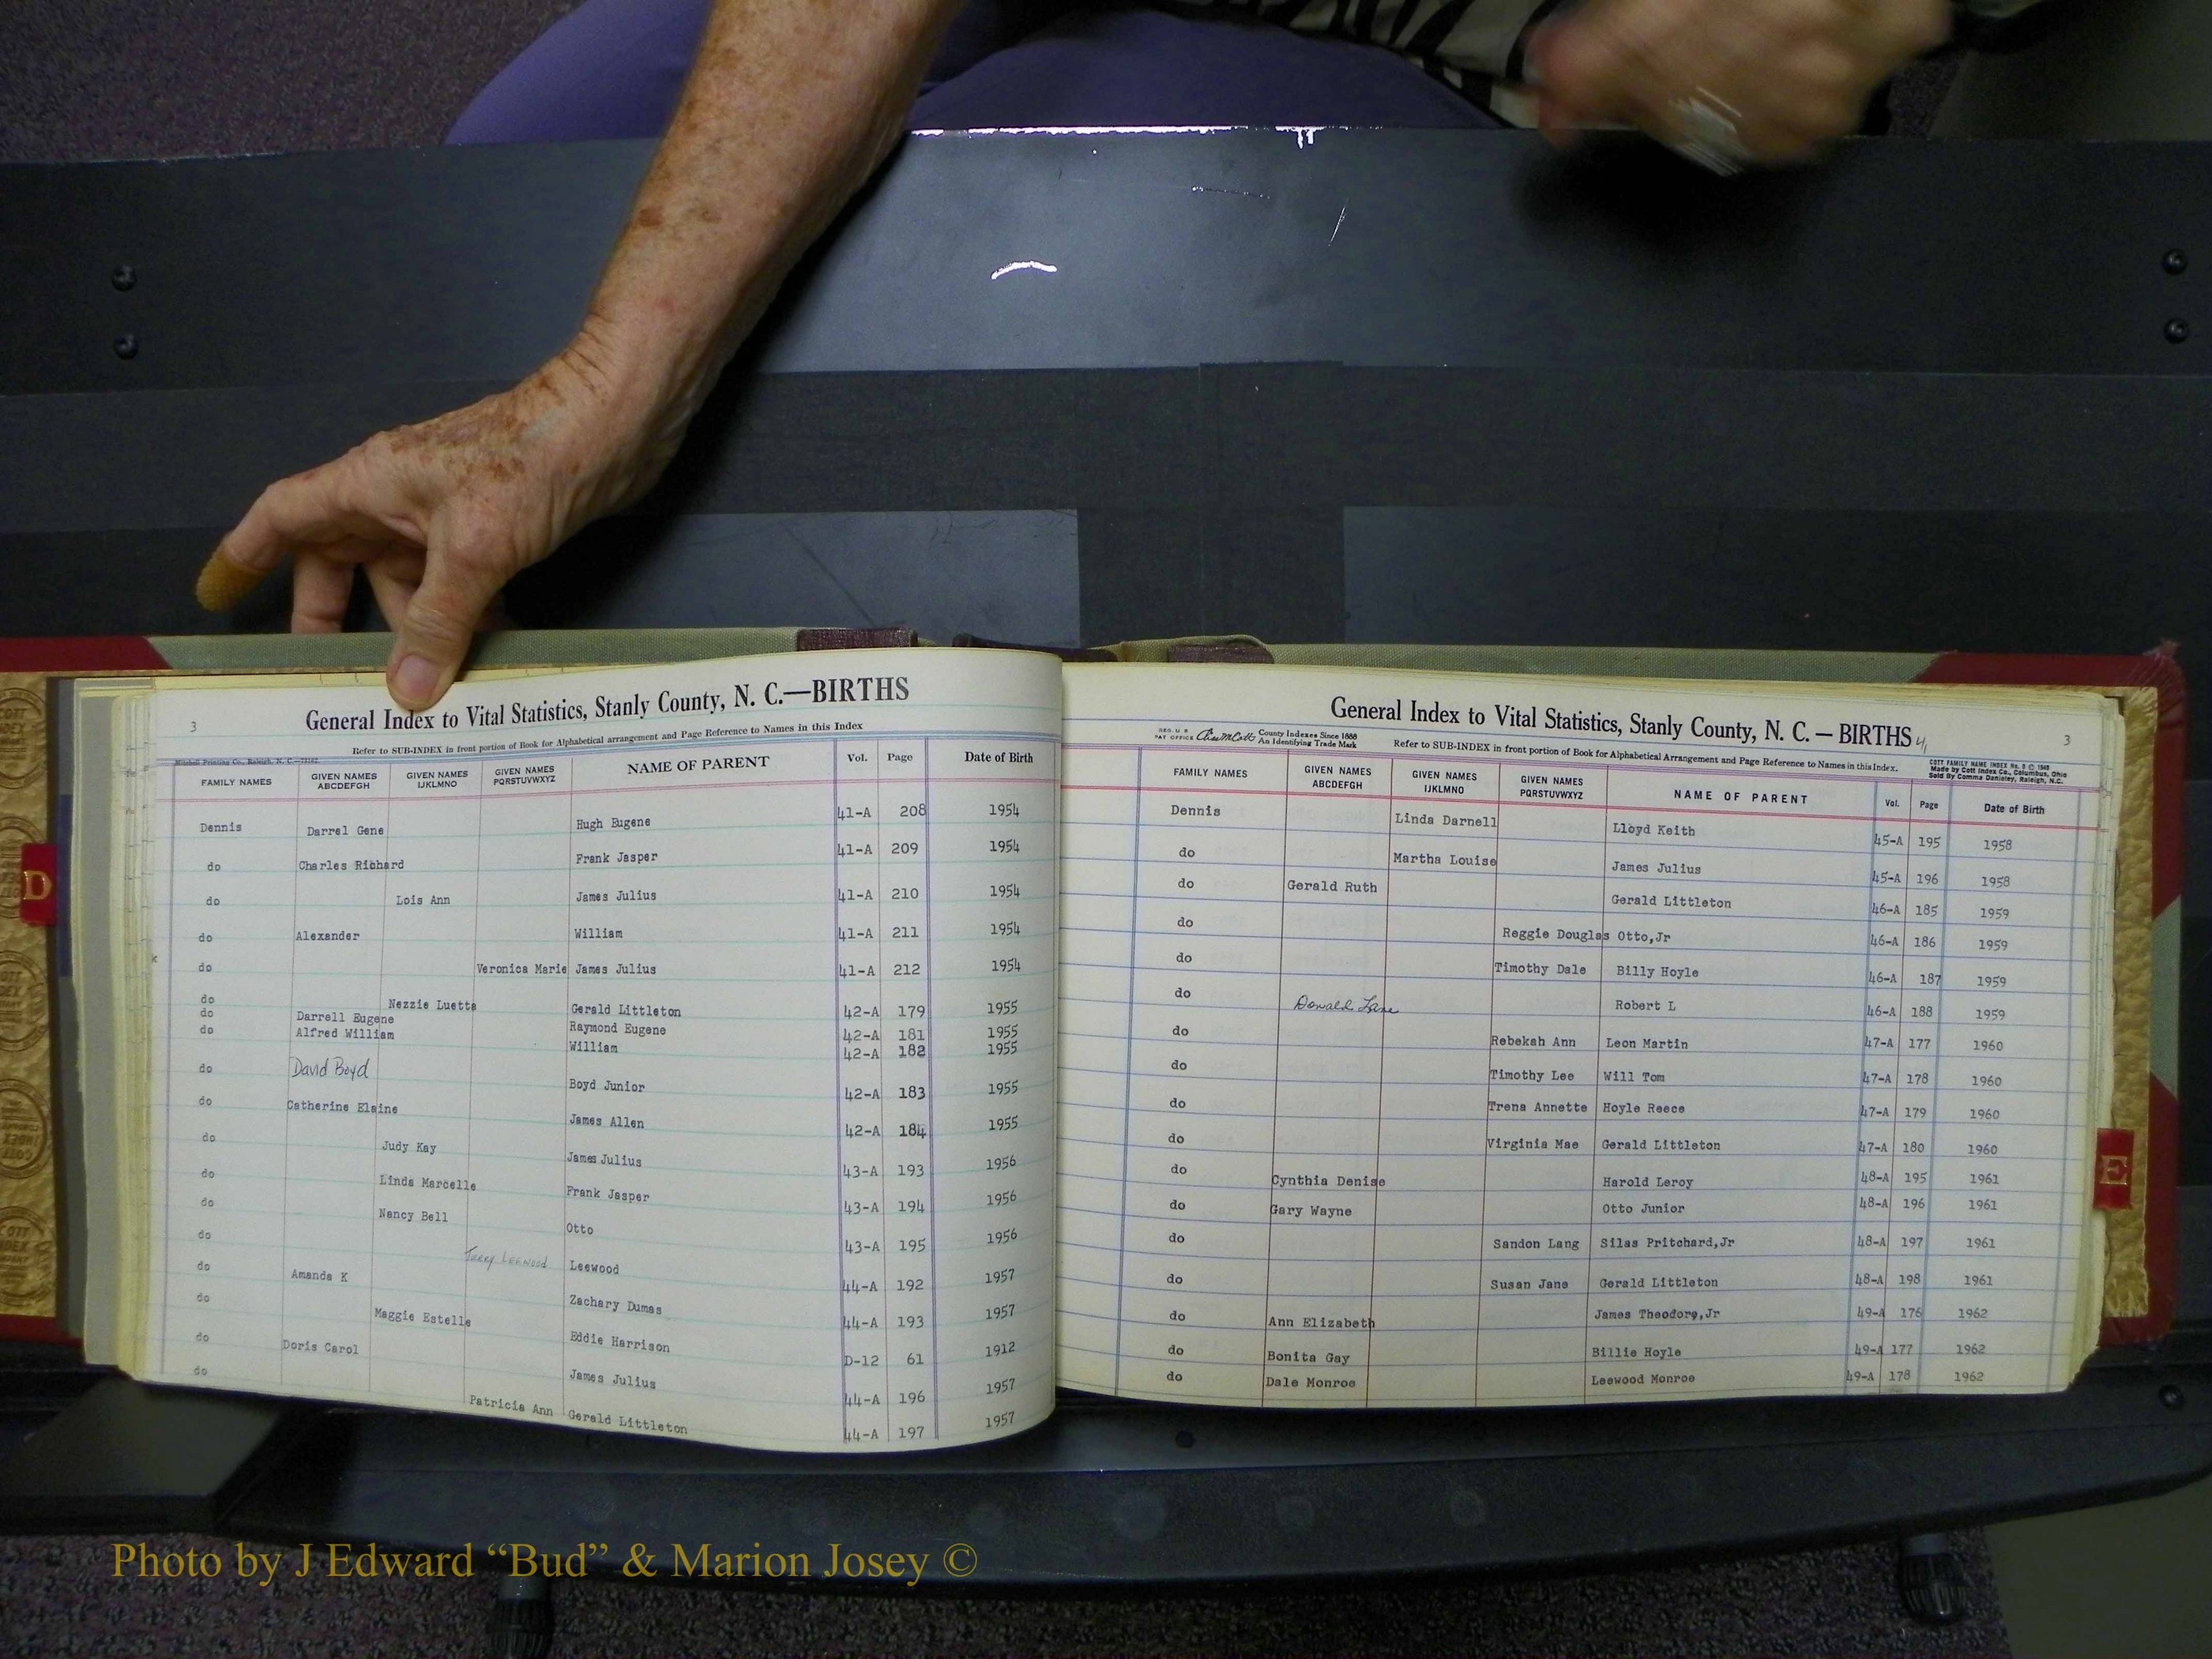 3
General Index to Vital Statistics, Stanly County, N. C.—BIRTHS
Refer to SUB-INDEX in front portion of Book for Alphabetical arrangement and Page Reference to Names in this Index
Mitchell Printing Co., Raleigh, N. C.
FAMILY NAMES GIVEN NAMES ABCDEFGH GIVEN NAMES IJKLMNO GIVEN NAMES PQRSTUVWXYZ NAME OF PARENT Vol. Page Date of Birth
Dennis Darrel Gene Hugh Eugene 41-A 208 1954
do Charles Richard Frank Jasper 41-A 209 1954
do Lois Ann James Julius 41-A 210 1954
do Alexander William 41-A 211 1954
do Veronica Marie James Julius 41-A 212 1954
do Nezzie Luetta Gerald Littleton 42-A 179 1955
do Darrell Eugene Raymond Eugene 42-A 181 1955
do Alfred William William 42-A 182 1955
do David Boyd Boyd Junior 42-A 183 1955
do Catherine Elaine James Allen 42-A 184 1955
do Judy Kay James Julius 43-A 193 1956
do Linda Marcelle Frank Jasper 43-A 194 1956
do Nancy Bell Otto 43-A 195 1956
do Terry Leewood Leewood 44-A 192 1957
do Amanda K Zachary Dumas 44-A 193 1957
do Maggie Estelle Eddie Harrison D-12 61 1912
do Doris Carol James Julius 44-A 196 1957
do Patricia Ann Gerald Littleton 44-A 197 1957
General Index to Vital Statistics, Stanly County, N. C. — BIRTHS 4
3
REG. U S PAT OFFICE County Indexes Since 1888 An Identifying Trade Mark
Refer to SUB-INDEX in front portion of Book for Alphabetical Arrangement and Page Reference to Names in this Index.
COTT FAMILY NAME INDEX
Made by Cott Index Co., Columbus, Ohio
FAMILY NAMES GIVEN NAMES ABCDEFGH GIVEN NAMES IJKLMNO GIVEN NAMES PQRSTUVWXYZ NAME OF PARENT Vol. Page Date of Birth
Dennis Linda Darnell Lloyd Keith 45-A 195 1958
do Martha Louise James Julius 45-A 196 1958
do Gerald Ruth Gerald Littleton 46-A 185 1959
do Reggie Douglas Otto,Jr 46-A 186 1959
do Timothy Dale Billy Hoyle 46-A 187 1959
do Donald Lane Robert L 46-A 188 1959
do Rebekah Ann Leon Martin 47-A 177 1960
do Timothy Lee Will Tom 47-A 178 1960
do Trena Annette Hoyle Reece 47-A 179 1960
do Virginia Mae Gerald Littleton 47-A 180 1960
do Cynthia Denise Harold Leroy 48-A 195 1961
do Gary Wayne Otto Junior 48-A 196 1961
do Sandon Lang Silas Pritchard,Jr 48-A 197 1961
do Susan Jane Gerald Littleton 48-A 198 1961
do Ann Elizabeth James Theodore,Jr 49-A 176 1962
do Bonita Gay Billie Hoyle 49-A 177 1962
do Dale Monroe Leewood Monroe 49-A 178 1962
D
E
Photo by J Edward “Bud” & Marion Josey ©